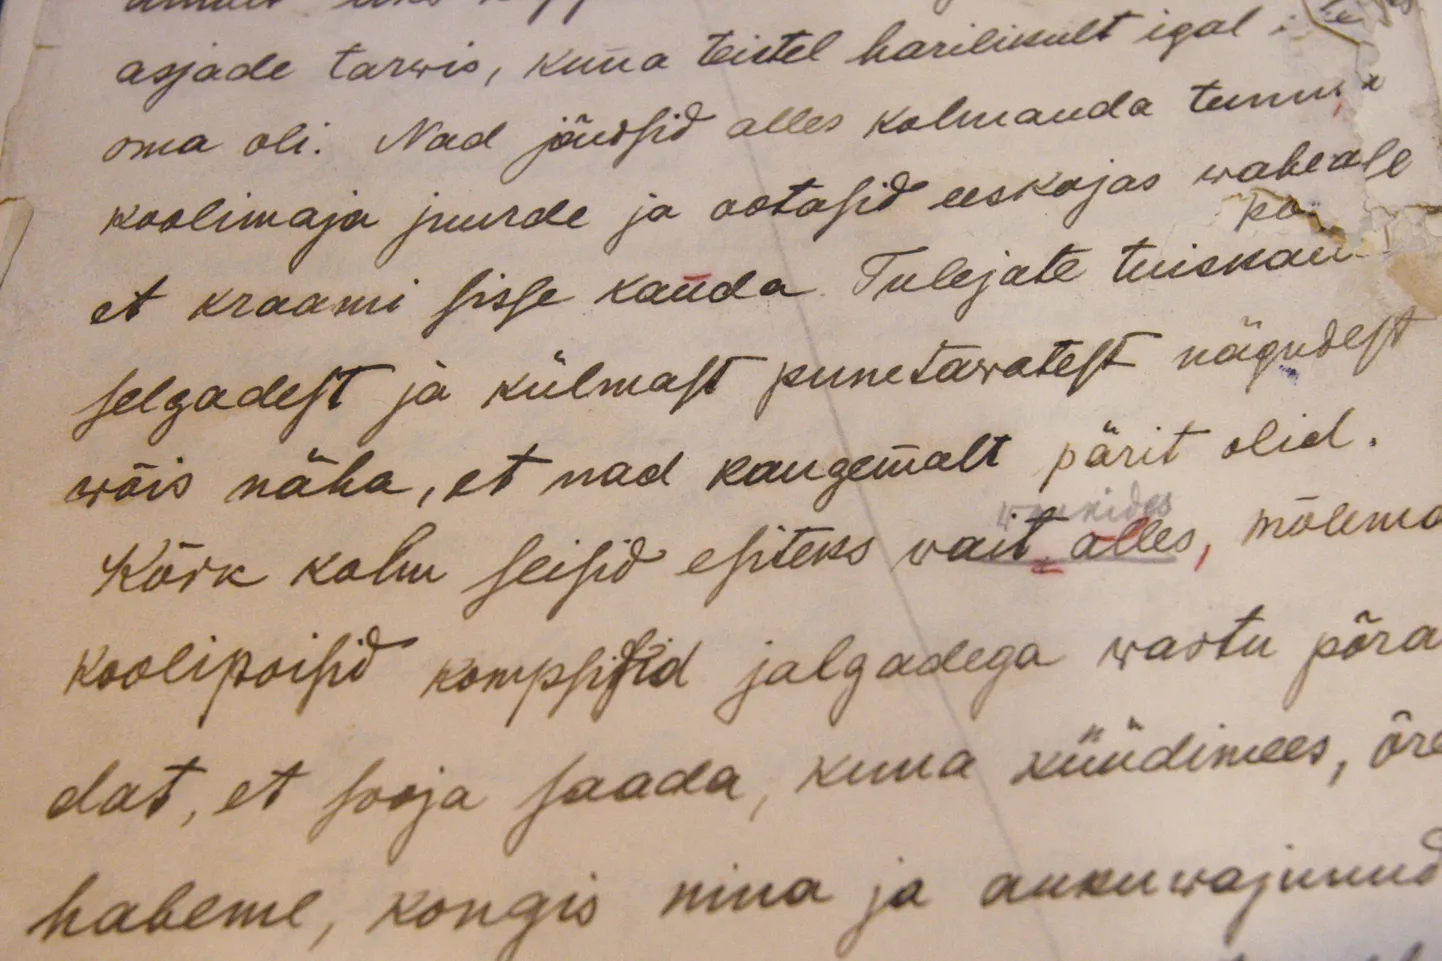 asjade tarwis, kuna teistel harilikult igal
oma oli. Nad jõudsid alles kolmanda tunni
koolimaja juurde ja ootasid eeskojas waheaega
et kraami sisse kanda. Tulejate tuiskan
selgadest ja külmast punetawatest nägudest
wõis näha, et nad kaugemalt pärit olid.
Kõik kolm seisid esiteks wait alles, mõlema
koolipoisid kompsisid jalgadega wastu põra
dat, et sooja saada, kuna küüdimees, õre
habeme, kongis nina ja aukuwajunud